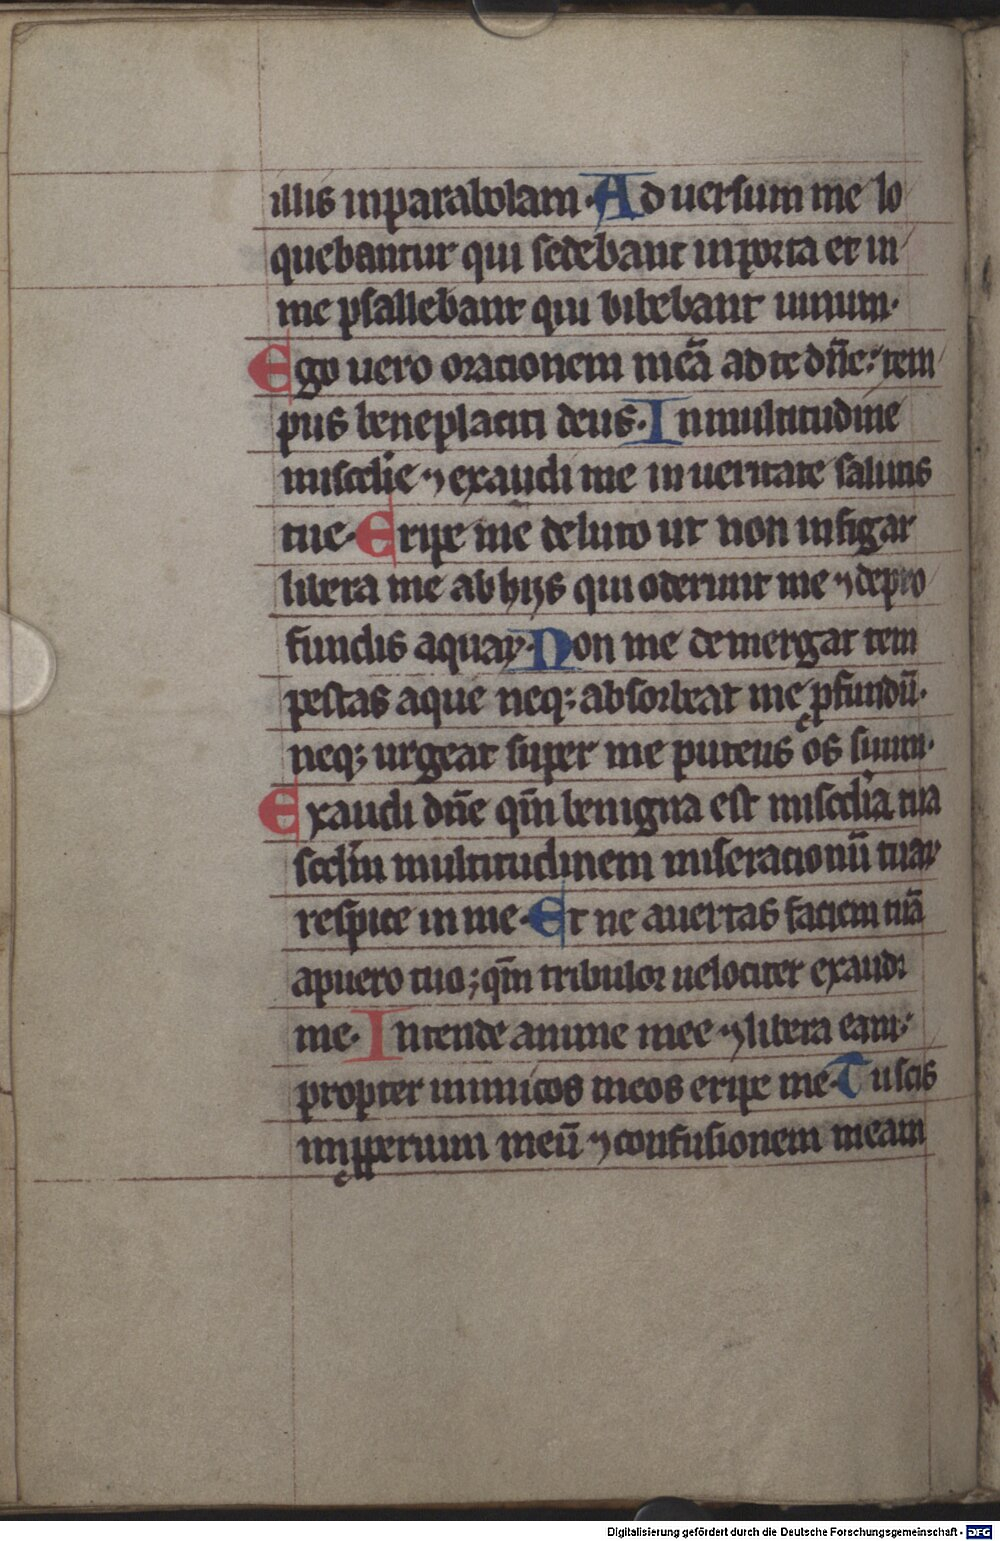 illis inparabolam· Aduersum me lo
quebantur qui sedebant inporta et in
me psallebant qui bibebant uinum·
Ego uero orationem meā ad te dn̄e: tem
pus beneplaciti deus· Inmultitudine
misc̄die ⁊ exaudi me in ueritate salutis
tue· Eripe me deluto ut non infigar
libera me ab hijs qui oderunt me ⁊ depro
fundis aquaꝝ· Non me demergat tem
pestas aque neq; absorbeat me ꝓfundū·
neq; urgeat super me puteus os suum·
Exaudi dn̄e qm̄ benigna est misc̄dia tua
sc̄dm multitudinem miserationū tuaꝝ
respice in me· Et ne auertas faciem tuā
apuero tuo; qm̄ tribulor uelociter exaudi
me· Intende anime mee ⁊ libera eam:
propter inimicos meos eripe me· Tu scis
inꝓperium meū ⁊ confusionem meam
Digitalisierung gefördert durch die Deutsche Forschungsgemeinschaft - DFG